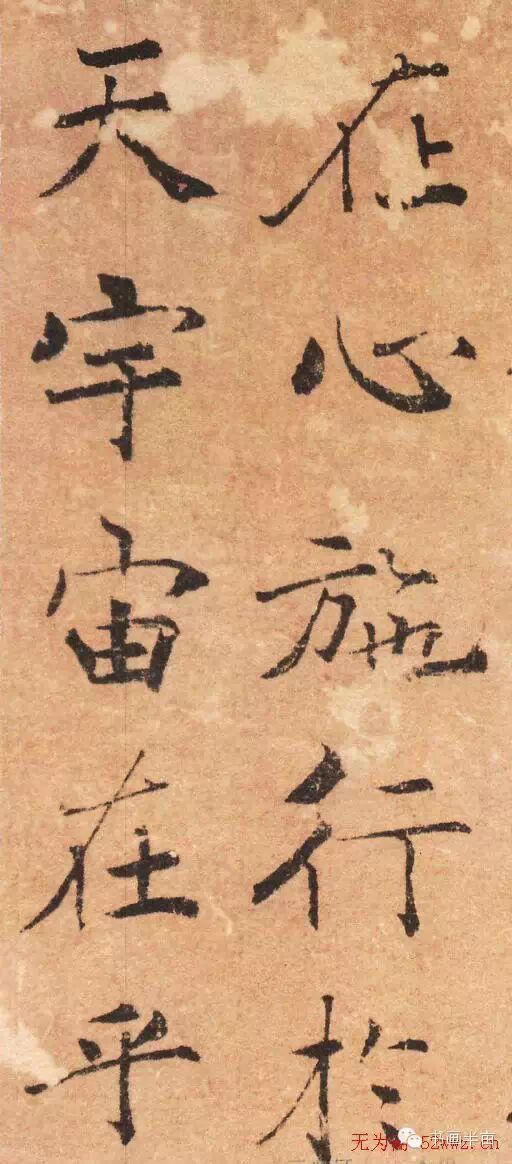 在心施行於
天宇宙在乎
书画半亩
52wwz.cn